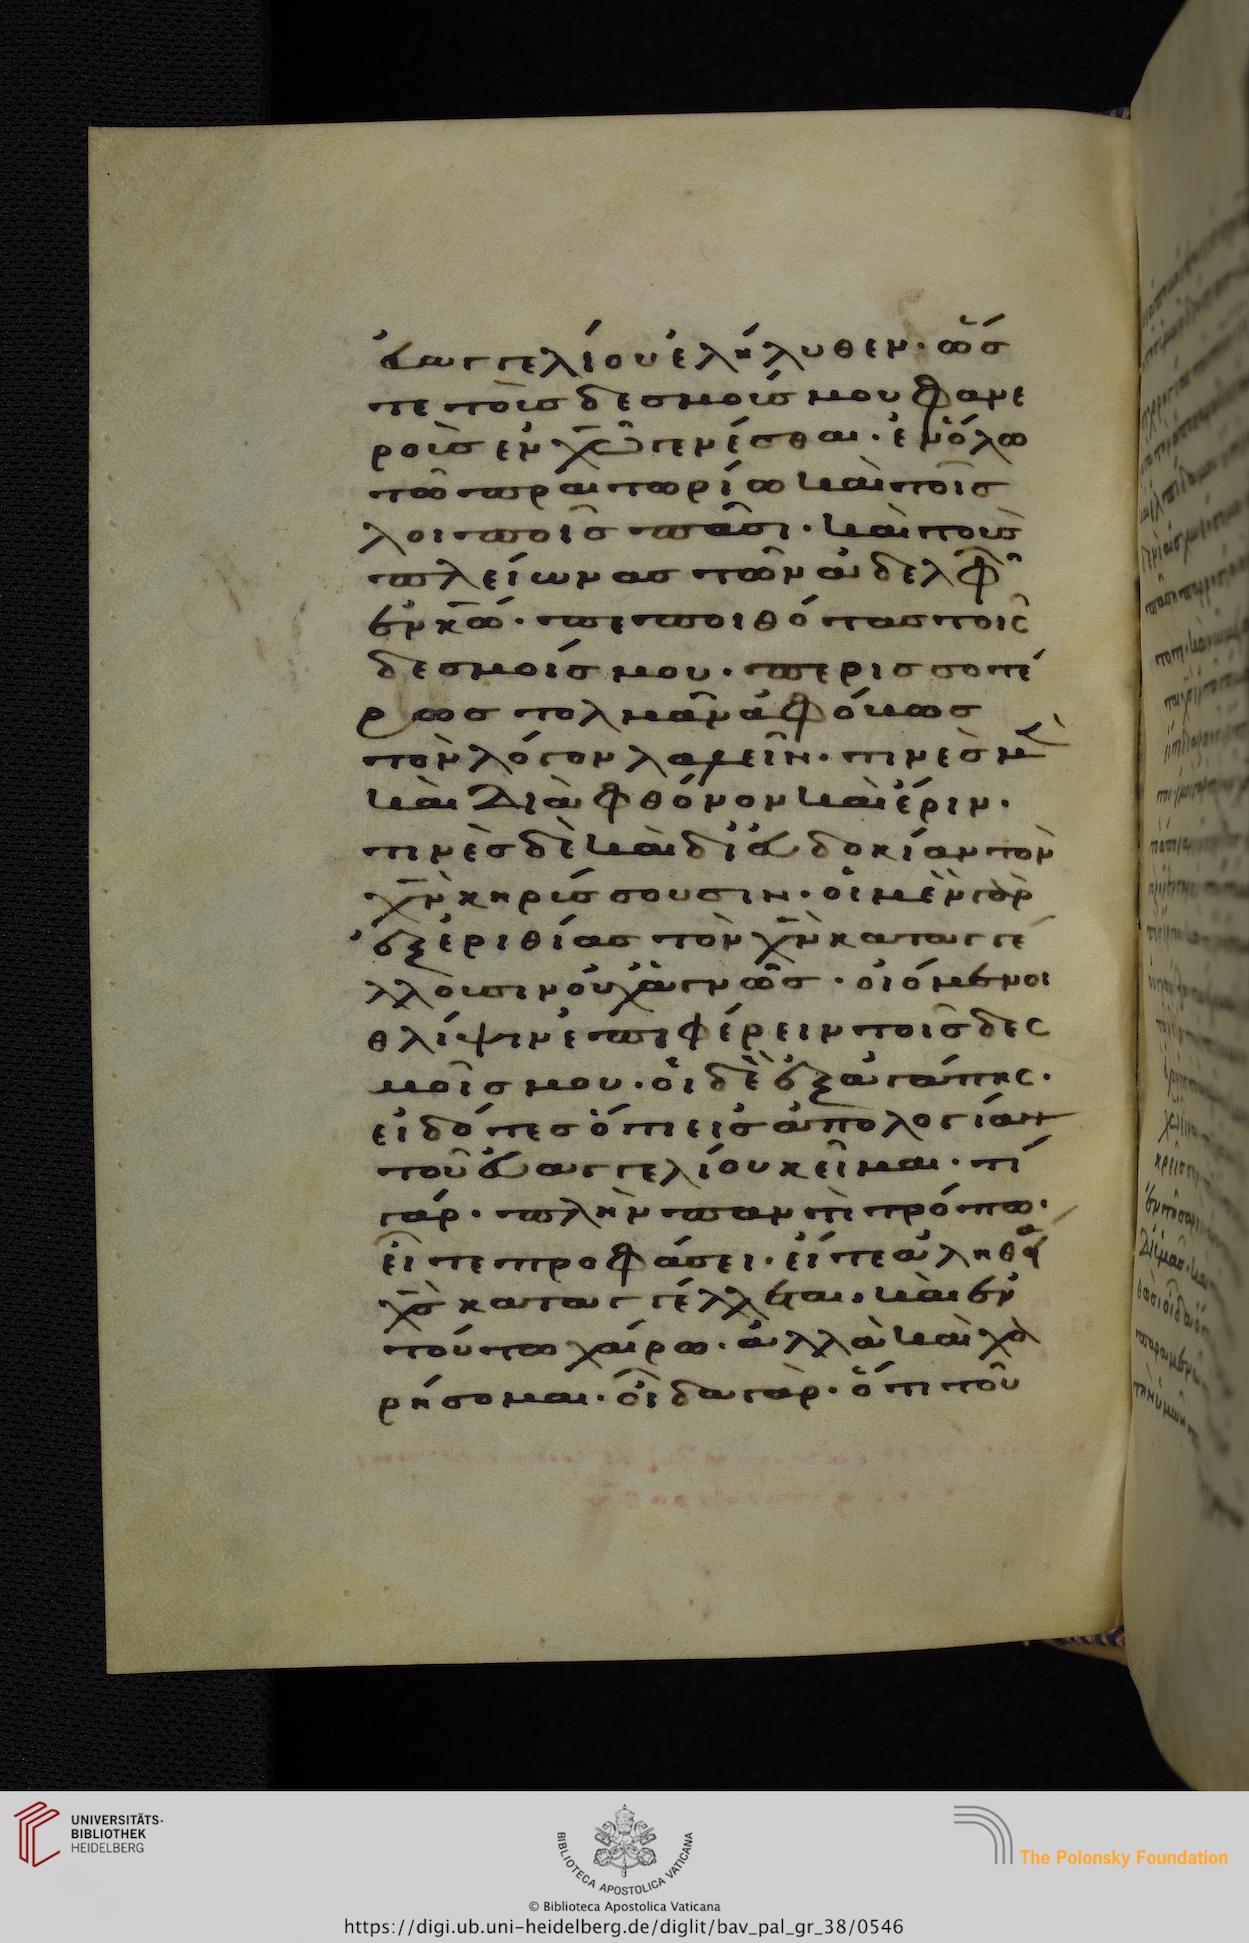 εὐαγγελίου ἐλήλυθεν· ὥσ
τε τοὺς δεσμούς μου φανε
ροὺς ἐν χ̅ω̅ γενέσθαι· ἐν ὅλω
τῶ πραιτωρίω καὶ τοῖς
λοιποῖς πᾶσι· καὶ τοὺς
πλείωνας τῶν ἀδελφῶ
ἐν κ̅ω̅· πεποιθότας τοῖς
δεσμοίς μου· περισσοτέ
ρως τολμᾶν ἀφόβως
τὸν λόγον λαλεῖν· τινὲς μὲ
καὶ διὰ φθόνον καὶ ἔριν·
τινὲς δὲ καὶ δι εὐδοκίαν τὸν
χ̅ν̅ κηρίσσουσιν· οἱ μὲν γὰρ
ἐξ ἐριθίας τὸν χ̅ν̅ καταγγέ
λλουσιν οὐχ ἁγνῶς· οἰόμενοι
θλίψιν ἐπιφέρειν τοῖς δεσ
μοῖς μου· οἱ δὲ ἐξ ἀγάπης·
εἰδότες ὅτι εἰς ἀπολογίαν
τοῦ εὐαγγελίου κεῖμαι· τί
γάρ· πλὴν παντὶ τρόπω·
εἴτε προφάσει· εἴτε ἀληθεία
χ̅ς̅ καταγγέλλεται· καὶ ἐν
τούτω χαίρω· ἀλλὰ καὶ χα
ρήσομαι· οἶδα γὰρ· ὅτι τοῦ
UNIVERSITÄTS-
BIBLIOTHEK
HEIDELBERG
BIBLIOTECA APOSTOLICA VATICANA
The Polonsky Foundation
© Biblioteca Apostolica Vaticana
https://digi.ub.uni-heidelberg.de/diglit/bav_pal_gr_38/0546